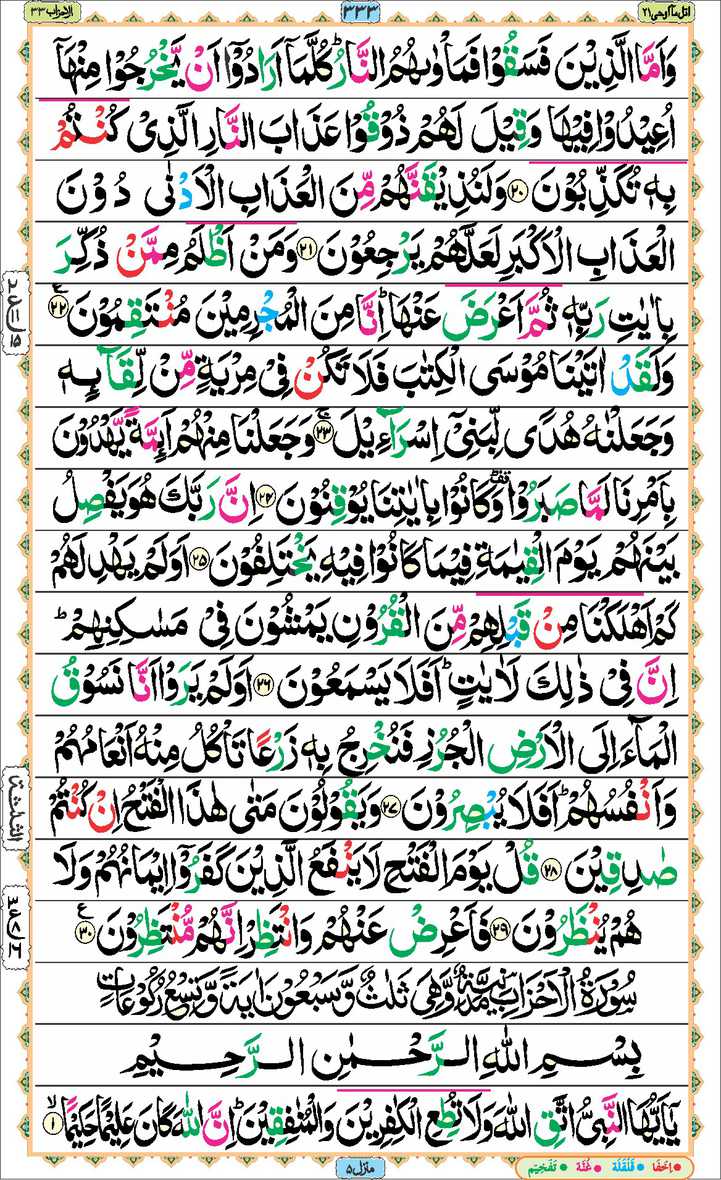 اتل مآ اوحی ٢١
٣٣٣
الاحزاب ٣٣
وَاَمَّا الَّذِیْنَ فَسَقُوْا فَمَاْوٰىهُمُ النَّارُ ؕ کُلَّمَاۤ اَرَادُوْۤا اَنْ یَّخْرُجُوْا مِنْهَاۤ
اُعِیْدُوْا فِیْهَا وَقِیْلَ لَهُمْ ذُوْقُوْا عَذَابَ النَّارِ الَّذِیْ کُنْتُمْ
بِهٖ تُکَذِّبُوْنَ ﴿۲۰﴾ وَلَنُذِیْقَنَّهُمْ مِّنَ الْعَذَابِ الْاَدْنٰی دُوْنَ
الْعَذَابِ الْاَکْبَرِ لَعَلَّهُمْ یَرْجِعُوْنَ ﴿۲۱﴾ وَمَنْ اَظْلَمُ مِمَّنْ ذُکِّرَ
بِاٰیٰتِ رَبِّهٖ ثُمَّ اَعْرَضَ عَنْهَا ؕ اِنَّا مِنَ الْمُجْرِمِیْنَ مُنْتَقِمُوْنَ ﴿۲۲﴾
وَلَقَدْ اٰتَیْنَا مُوْسَی الْکِتٰبَ فَلَا تَکُنْ فِیْ مِرْیَةٍ مِّنْ لِّقَآئِهٖ
وَجَعَلْنٰهُ هُدًی لِّبَنِیْۤ اِسْرَآءِیْلَ ﴿۲۳﴾ وَجَعَلْنَا مِنْهُمْ اَئِمَّةً یَّهْدُوْنَ
بِاَمْرِنَا لَمَّا صَبَرُوْا ؕ وَکَانُوْا بِاٰیٰتِنَا یُوْقِنُوْنَ ﴿۲۴﴾ اِنَّ رَبَّكَ هُوَ یَفْصِلُ
بَیْنَهُمْ یَوْمَ الْقِیٰمَةِ فِیْمَا کَانُوْا فِیْهِ یَخْتَلِفُوْنَ ﴿۲۵﴾ اَوَلَمْ یَهْدِ لَهُمْ
کَمْ اَهْلَکْنَا مِنْ قَبْلِهِمْ مِّنَ الْقُرُوْنِ یَمْشُوْنَ فِیْ مَسٰکِنِهِمْ ؕ
اِنَّ فِیْ ذٰلِكَ لَاٰیٰتٍ ؕ اَفَلَا یَسْمَعُوْنَ ﴿۲۶﴾ اَوَلَمْ یَرَوْا اَنَّا نَسُوْقُ
الْمَآءَ اِلَی الْاَرْضِ الْجُرُزِ فَنُخْرِجُ بِهٖ زَرْعًا تَاْکُلُ مِنْهُ اَنْعَامُهُمْ
وَاَنْفُسُهُمْ ؕ اَفَلَا یُبْصِرُوْنَ ﴿۲۷﴾ وَیَقُوْلُوْنَ مَتٰی هٰذَا الْفَتْحُ اِنْ کُنْتُمْ
صٰدِقِیْنَ ﴿۲۸﴾ قُلْ یَوْمَ الْفَتْحِ لَا یَنْفَعُ الَّذِیْنَ کَفَرُوْۤا اِیْمَانُهُمْ وَلَا
هُمْ یُنْظَرُوْنَ ﴿۲۹﴾ فَاَعْرِضْ عَنْهُمْ وَانْتَظِرْ اِنَّهُمْ مُّنْتَظِرُوْنَ ﴿۳۰﴾
سُوْرَةُ الْاَحْزَابِ مَدَنِیَّةٌ وَّهِیَ ثَلٰثٌ وَّسَبْعُوْنَ اٰیَةً وَّتِسْعُ رُکُوْعَاتٍ
بِسْمِ اللّٰهِ الرَّحْمٰنِ الرَّحِیْمِ
یٰۤاَیُّهَا النَّبِیُّ اتَّقِ اللّٰهَ وَلَا تُطِعِ الْکٰفِرِیْنَ وَالْمُنٰفِقِیْنَ ؕ اِنَّ اللّٰهَ کَانَ عَلِیْمًا حَکِیْمًا ﴿۱﴾
منزل ٥
اِخفَا قَلقَلَة غُنَّة تَفخِیم